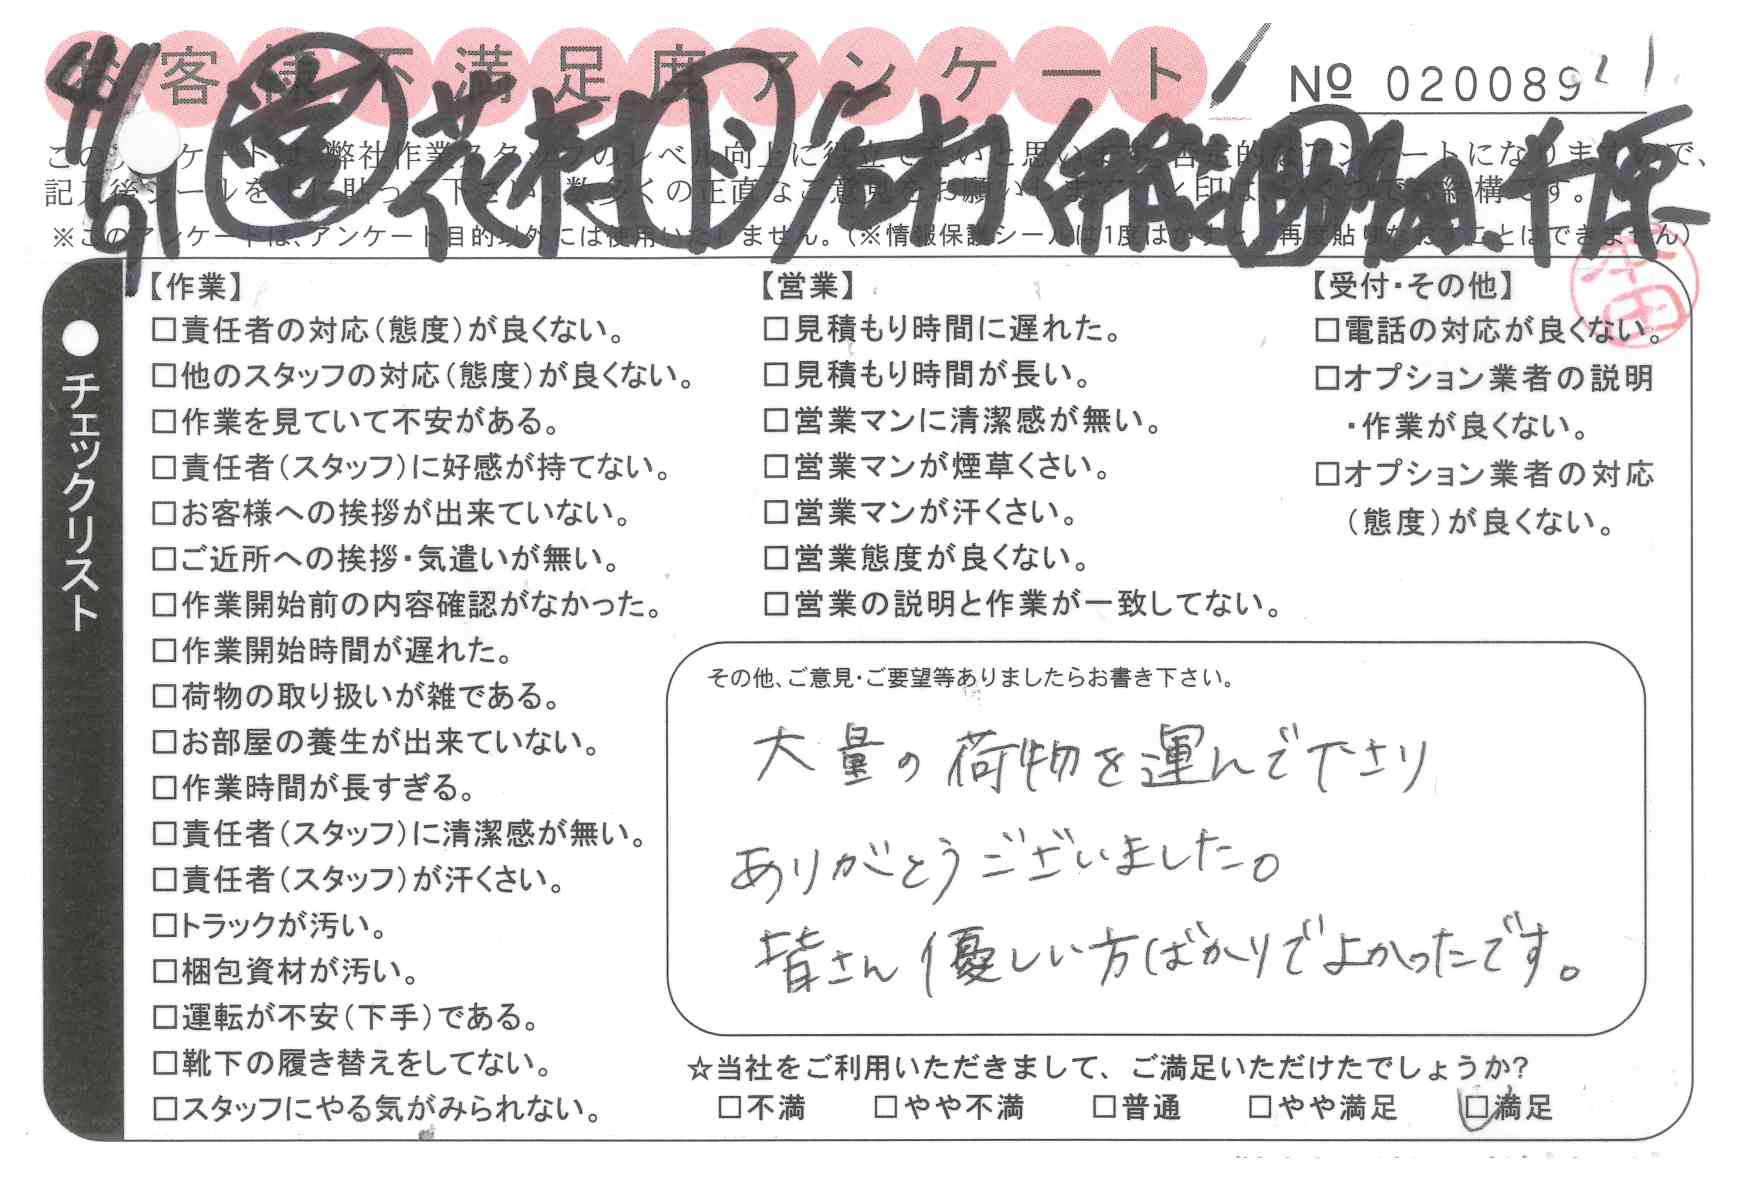 お客様不満足度アンケート
№ 020089
4/19 営 花村 ド 石村 伊藤
このアンケートは、弊社作業スタッフのレベル向上に役立てたいと思います。否定的なアンケートになりますので、
記入後シールを上に貼って下さい。数多くの正直なご意見をお願いします。
※このアンケートは、アンケート目的以外には使用いたしません。(※情報保護シールは1度はがすと、再度貼りなおすことはできません)
本田
●チェックリスト
【作業】
□責任者の対応(態度)が良くない。
□他のスタッフの対応(態度)が良くない。
□作業を見ていて不安がある。
□責任者(スタッフ)に好感が持てない。
□お客様への挨拶が出来ていない。
□ご近所への挨拶・気遣いが無い。
□作業開始前の内容確認がなかった。
□作業開始時間が遅れた。
□荷物の取り扱いが雑である。
□お部屋の養生が出来ていない。
□作業時間が長すぎる。
□責任者(スタッフ)に清潔感が無い。
□責任者(スタッフ)が汗くさい。
□トラックが汚い。
□梱包資材が汚い。
□運転が不安(下手)である。
□靴下の履き替えをしてない。
□スタッフにやる気がみられない。
【営業】
□見積もり時間に遅れた。
□見積もり時間が長い。
□営業マンに清潔感が無い。
□営業マンが煙草くさい。
□営業マンが汗くさい。
□営業態度が良くない。
□営業の説明と作業が一致してない。
【受付・その他】
□電話の対応が良くない。
□オプション業者の説明
・作業が良くない。
□オプション業者の対応
(態度)が良くない。
その他、ご意見・ご要望等ありましたらお書き下さい。
大量の荷物を運んで下さり
ありがとうございました。
皆さん優しい方ばかりでよかったです。
☆当社をご利用いただきまして、ご満足いただけたでしょうか?
□不満 □やや不満 □普通 □やや満足 □満足